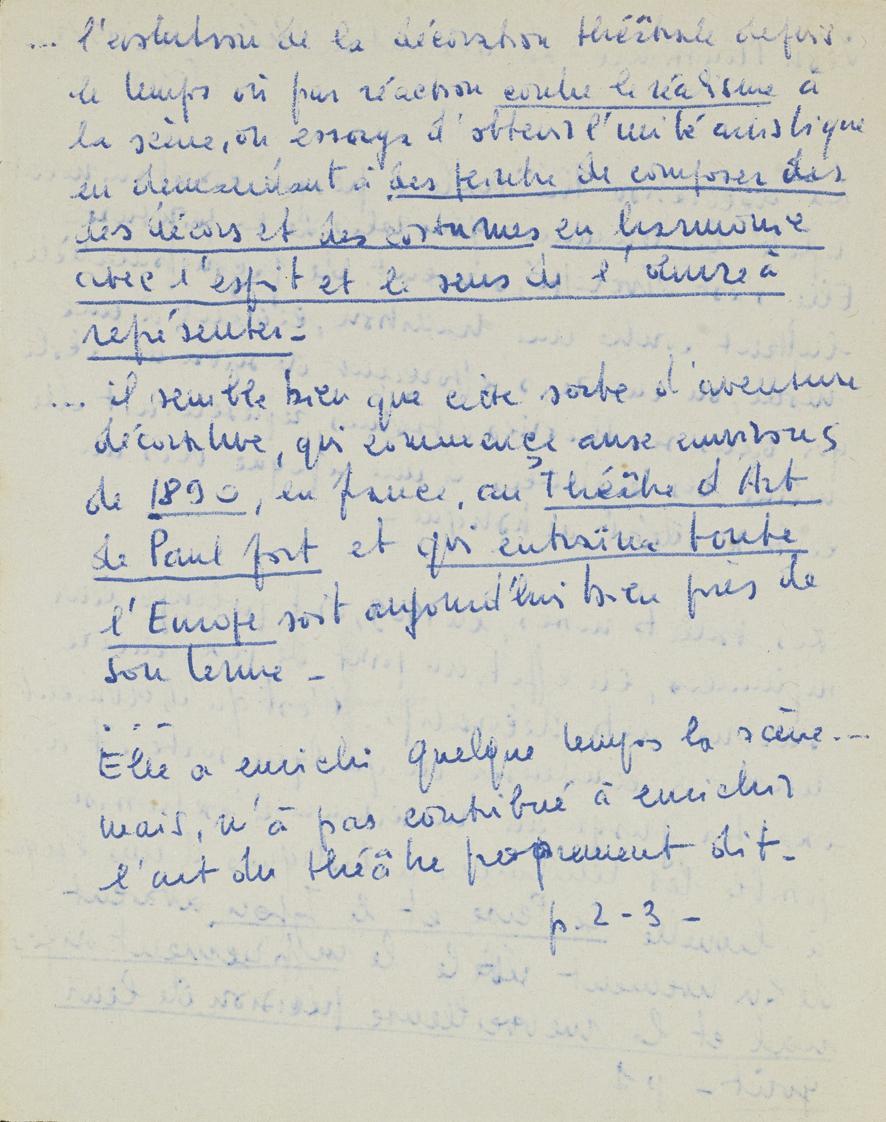 ... l'evolution de la décoration théâtrale depuis
le temps où par réaction contre le réalisme à
la scène, on essaya d'obtenir l'unité artistique
en demandant à des peintre de composer des
des décors et des costumes en harmonie
avec l'esprit et le sens de l'œuvre à
représenter -
... il semble bien que cette sorte d'aventure
décorative, qui commence aux environs
de 1890, en france, au Théâtre d'Art
de Paul fort et qui entraîna toute
l'Europe soit aujourd'hui bien près de
son terme -
...
Elle a enrichi quelque temps la scène...
mais, n'a pas contribué à enrichir
l'art du théâtre proprement dit -
p. 2-3 -